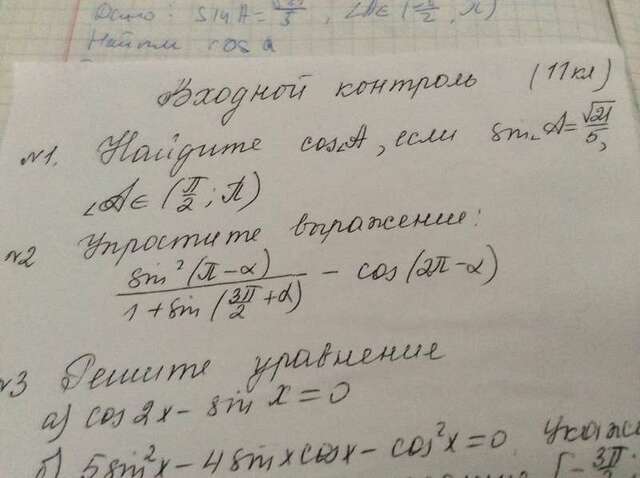 Дано: sin A = √21/5, ∠A∈(π/2; π)
Найти cos α
Входной контроль (11 кл)
№1. Найдите cos∠A, если sin∠A = √21/5,
∠A∈(π/2; π)
№2 Упростите выражение:
sin²(π-α)/(1+sin(3π/2+α)) - cos(2π-α)
№3 Решите уравнение
а) cos2x - sin x = 0
б) 5sin²x - 4sinxcosx - cos²x = 0.
[-3π/2;